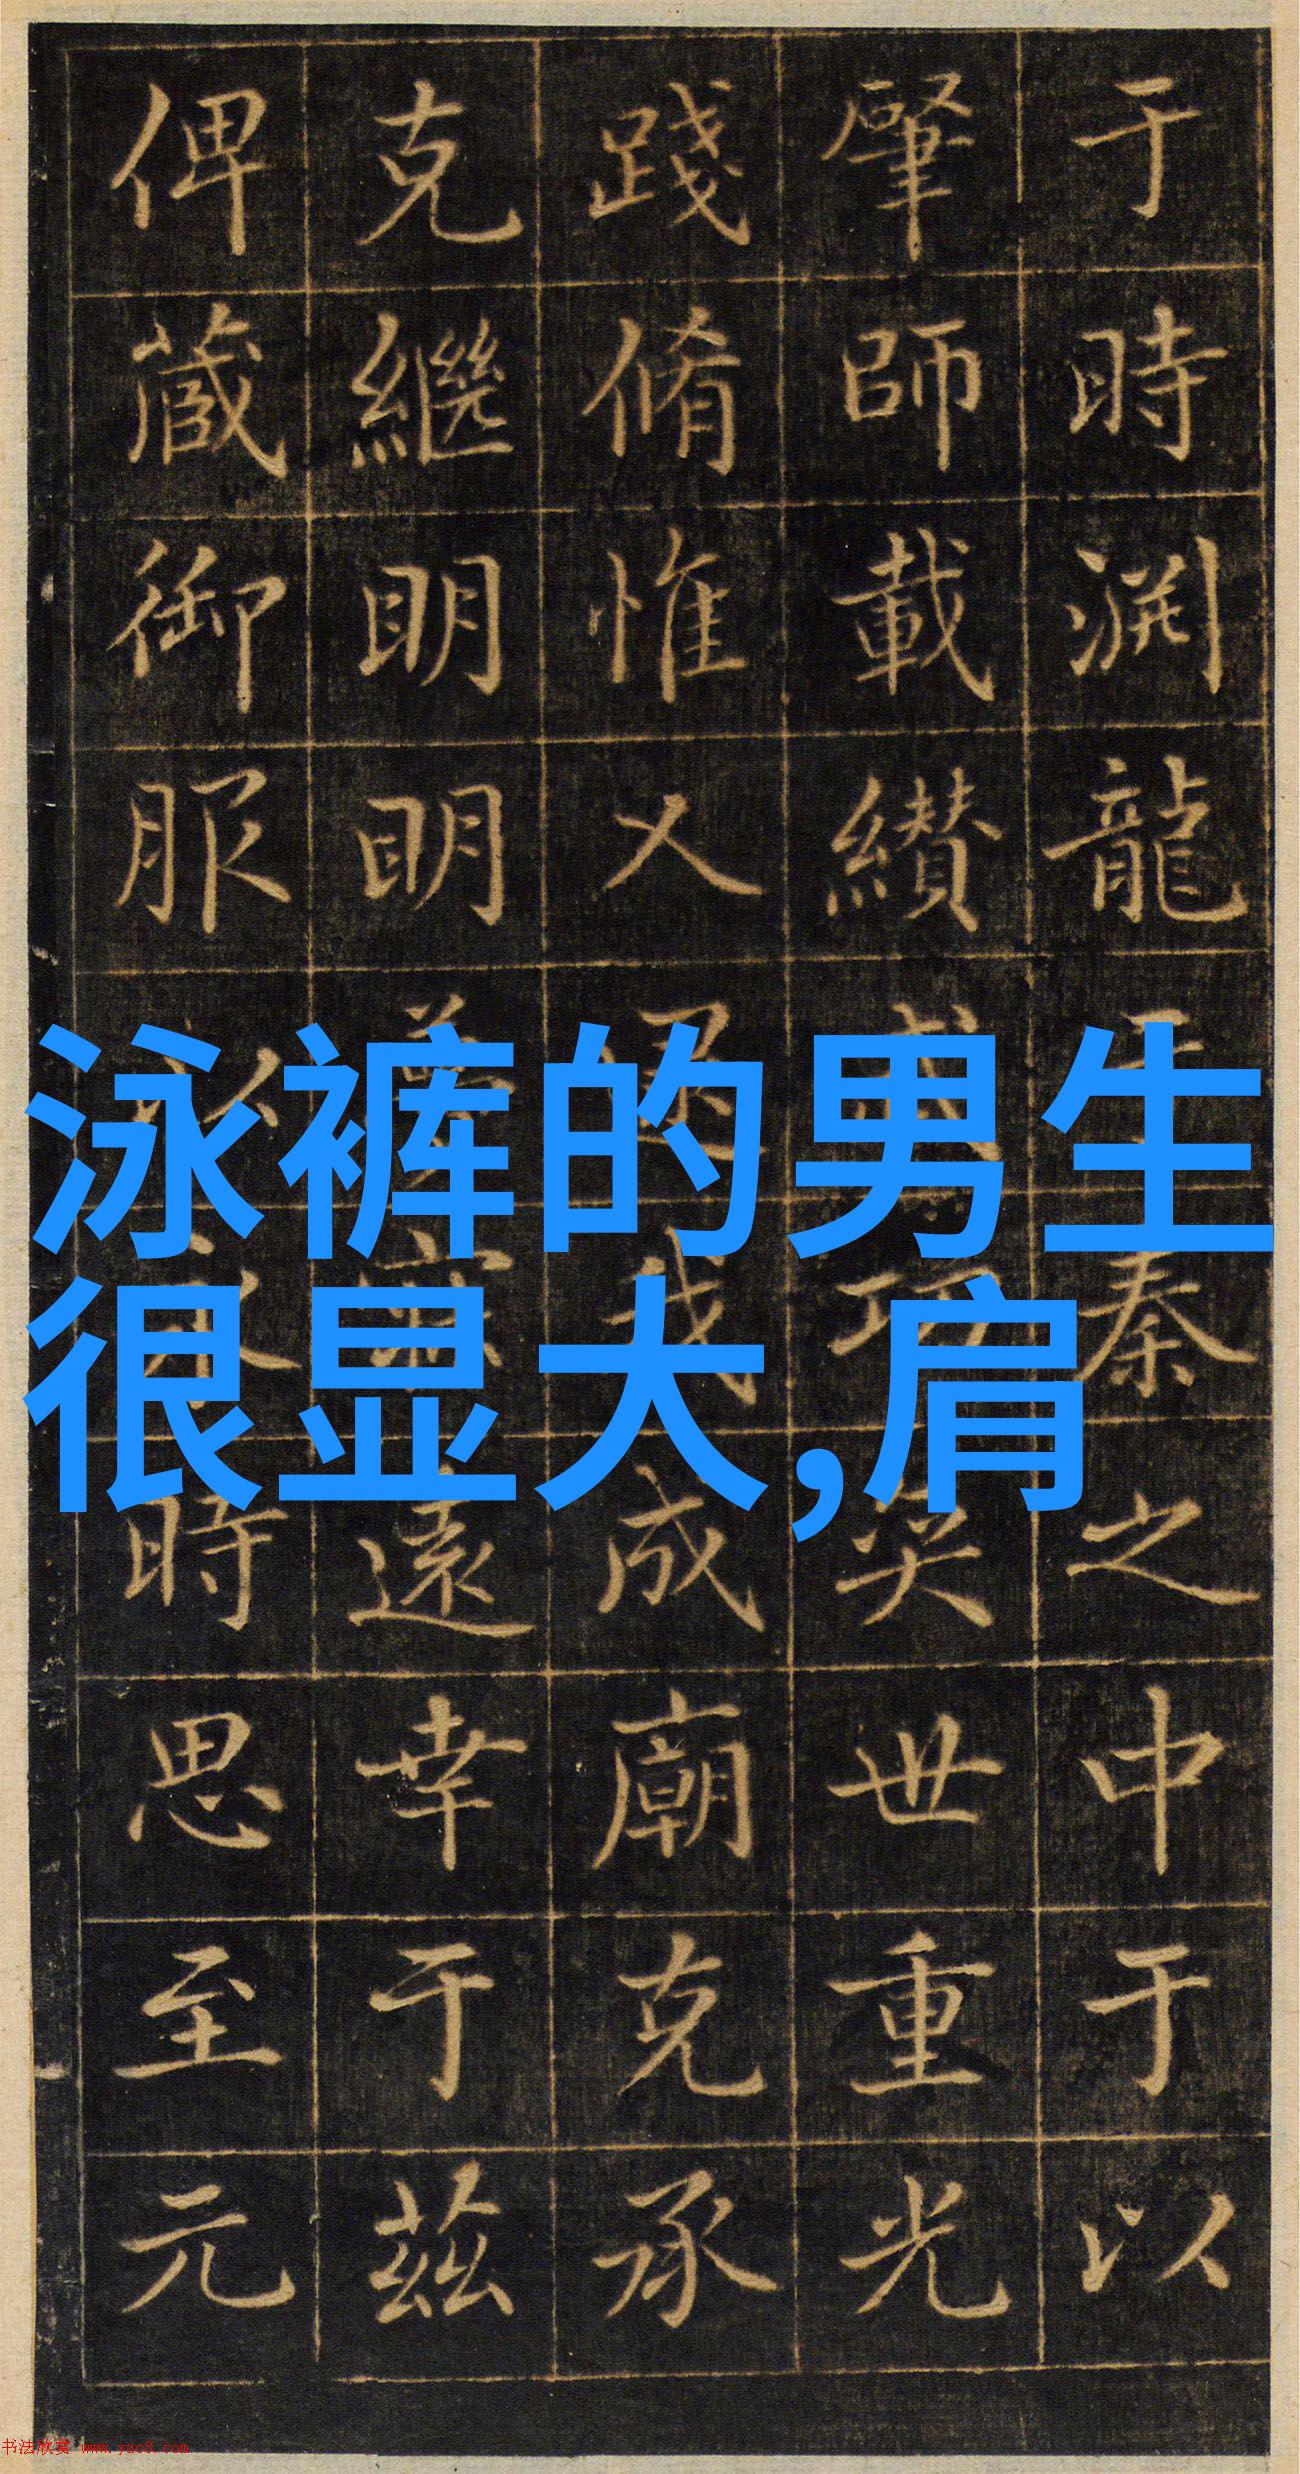 于時淵龍于秦之中于以
肇師載纘武功奕世重光
踐脩惟乂我成廟克承
克繼明明遠幸于茲
俾蕆御服時思至元
泳裤的男生
很显大,肩
书法欣赏 www.yac8.com